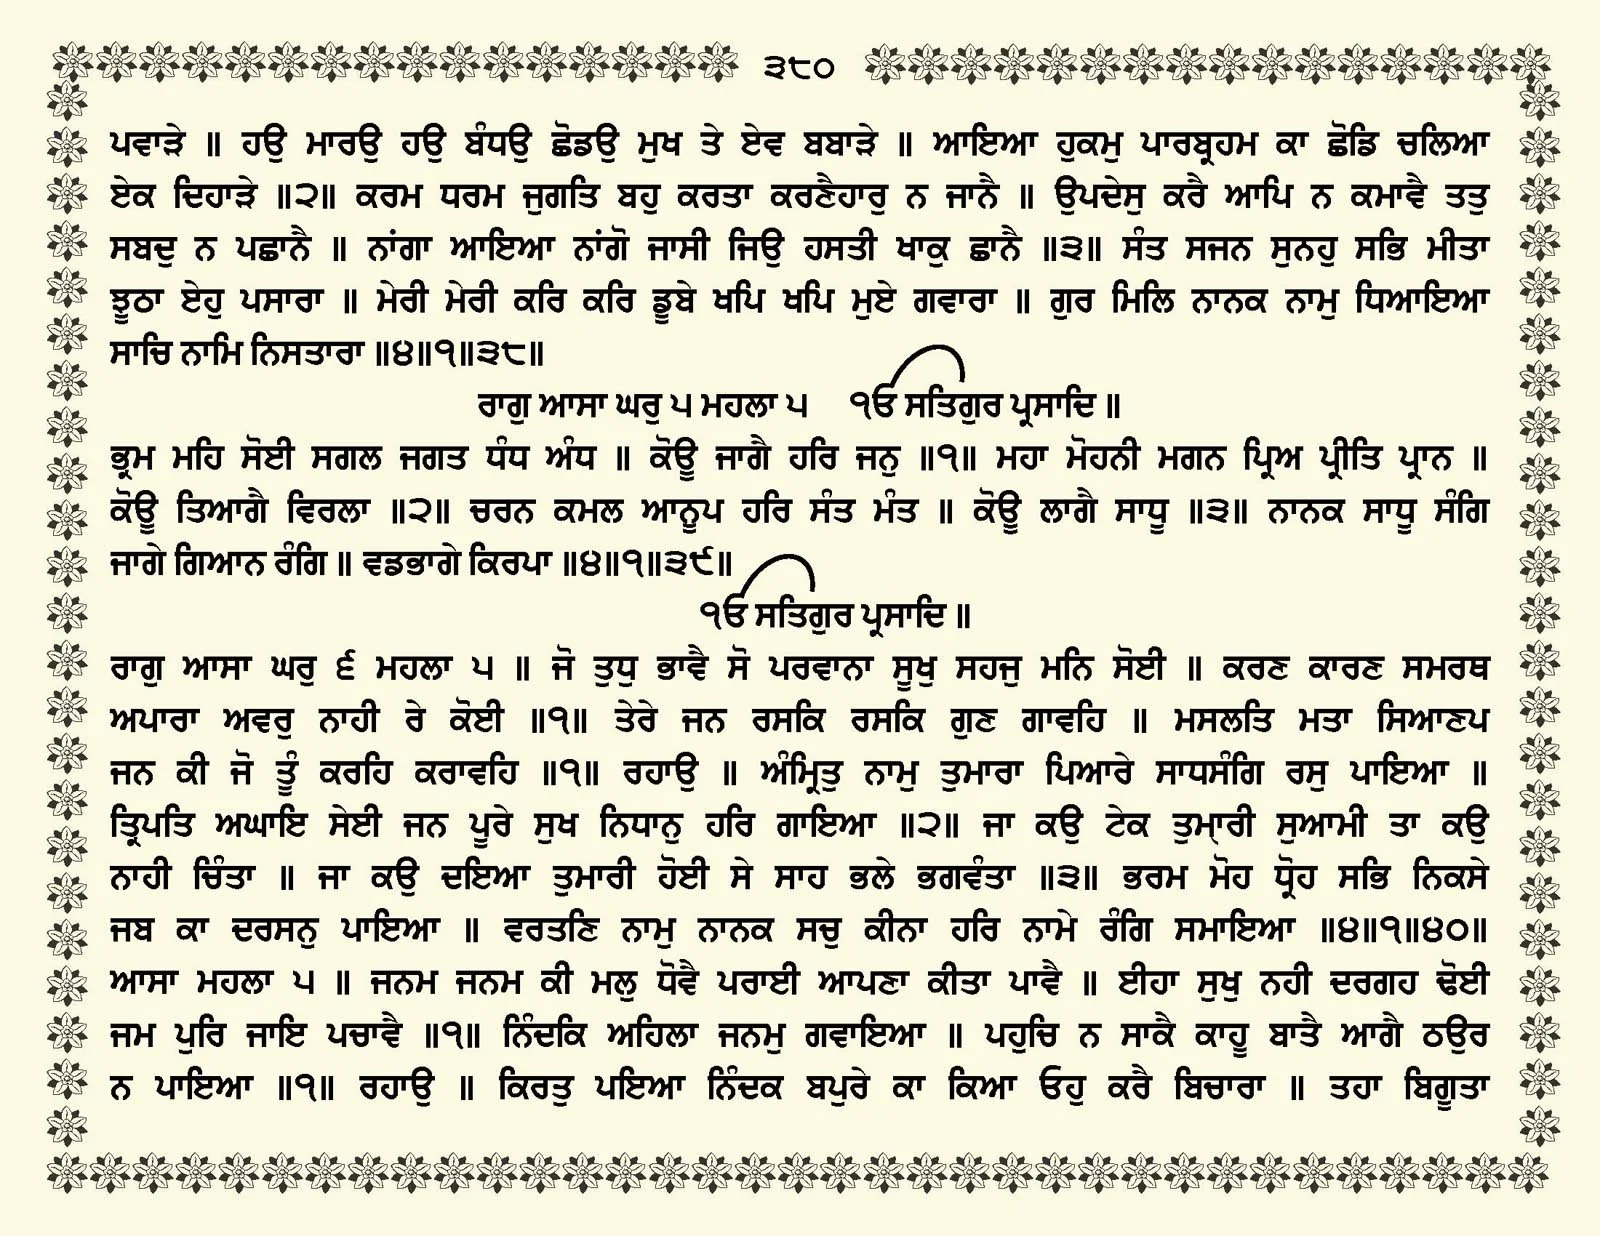 ੩੮੦
ਪਵਾੜੇ ॥ ਹਉ ਮਾਰਉ ਹਉ ਬੰਧਉ ਛੋਡਉ ਮੁਖ ਤੇ ਏਵ ਬਬਾੜੇ ॥ ਆਇਆ ਹੁਕਮੁ ਪਾਰਬ੍ਰਹਮ ਕਾ ਛੋਡਿ ਚਲਿਆ
ਏਕ ਦਿਹਾੜੇ ॥੨॥ ਕਰਮ ਧਰਮ ਜੁਗਤਿ ਬਹੁ ਕਰਤਾ ਕਰਣੈਹਾਰੁ ਨ ਜਾਨੈ ॥ ਉਪਦੇਸੁ ਕਰੈ ਆਪਿ ਨ ਕਮਾਵੈ ਤਤੁ
ਸਬਦੁ ਨ ਪਛਾਨੈ ॥ ਨਾਂਗਾ ਆਇਆ ਨਾਂਗੋ ਜਾਸੀ ਜਿਉ ਹਸਤੀ ਖਾਕੁ ਛਾਨੈ ॥੩॥ ਸੰਤ ਸਜਨ ਸੁਨਹੁ ਸਭਿ ਮੀਤਾ
ਝੂਠਾ ਏਹੁ ਪਸਾਰਾ ॥ ਮੇਰੀ ਮੇਰੀ ਕਰਿ ਕਰਿ ਡੂਬੇ ਖਪਿ ਖਪਿ ਮੁਏ ਗਵਾਰਾ ॥ ਗੁਰ ਮਿਲਿ ਨਾਨਕ ਨਾਮੁ ਧਿਆਇਆ
ਸਾਚਿ ਨਾਮਿ ਨਿਸਤਾਰਾ ॥੪॥੧॥੩੮॥
ਰਾਗੁ ਆਸਾ ਘਰੁ ੫ ਮਹਲਾ ੫ ੴ ਸਤਿਗੁਰ ਪ੍ਰਸਾਦਿ ॥
ਭ੍ਰਮ ਮਹਿ ਸੋਈ ਸਗਲ ਜਗਤ ਧੰਧ ਅੰਧ ॥ ਕੋਊ ਜਾਗੈ ਹਰਿ ਜਨੁ ॥੧॥ ਮਹਾ ਮੋਹਨੀ ਮਗਨ ਪ੍ਰਿਅ ਪ੍ਰੀਤਿ ਪ੍ਰਾਨ ॥
ਕੋਊ ਤਿਆਗੈ ਵਿਰਲਾ ॥੨॥ ਚਰਨ ਕਮਲ ਆਨੂਪ ਹਰਿ ਸੰਤ ਮੰਤ ॥ ਕੋਊ ਲਾਗੈ ਸਾਧੂ ॥੩॥ ਨਾਨਕ ਸਾਧੂ ਸੰਗਿ
ਜਾਗੇ ਗਿਆਨ ਰੰਗਿ ॥ ਵਡਭਾਗੇ ਕਿਰਪਾ ॥੪॥੧॥੩੯॥
ੴ ਸਤਿਗੁਰ ਪ੍ਰਸਾਦਿ ॥
ਰਾਗੁ ਆਸਾ ਘਰੁ ੬ ਮਹਲਾ ੫ ॥ ਜੋ ਤੁਧੁ ਭਾਵੈ ਸੋ ਪਰਵਾਨਾ ਸੂਖੁ ਸਹਜੁ ਮਨਿ ਸੋਈ ॥ ਕਰਣ ਕਾਰਣ ਸਮਰਥ
ਅਪਾਰਾ ਅਵਰੁ ਨਾਹੀ ਰੇ ਕੋਈ ॥੧॥ ਤੇਰੇ ਜਨ ਰਸਕਿ ਰਸਕਿ ਗੁਣ ਗਾਵਹਿ ॥ ਮਸਲਤਿ ਮਤਾ ਸਿਆਣਪ
ਜਨ ਕੀ ਜੋ ਤੂੰ ਕਰਹਿ ਕਰਾਵਹਿ ॥੧॥ ਰਹਾਉ ॥ ਅੰਮ੍ਰਿਤੁ ਨਾਮੁ ਤੁਮਾਰਾ ਪਿਆਰੇ ਸਾਧਸੰਗਿ ਰਸੁ ਪਾਇਆ ॥
ਤ੍ਰਿਪਤਿ ਅਘਾਇ ਸੇਈ ਜਨ ਪੂਰੇ ਸੁਖ ਨਿਧਾਨੁ ਹਰਿ ਗਾਇਆ ॥੨॥ ਜਾ ਕਉ ਟੇਕ ਤੁਮ੍ਾਰੀ ਸੁਆਮੀ ਤਾ ਕਉ
ਨਾਹੀ ਚਿੰਤਾ ॥ ਜਾ ਕਉ ਦਇਆ ਤੁਮਾਰੀ ਹੋਈ ਸੇ ਸਾਹ ਭਲੇ ਭਗਵੰਤਾ ॥੩॥ ਭਰਮ ਮੋਹ ਧ੍ਰੋਹ ਸਭਿ ਨਿਕਸੇ
ਜਬ ਕਾ ਦਰਸਨੁ ਪਾਇਆ ॥ ਵਰਤਣਿ ਨਾਮੁ ਨਾਨਕ ਸਚੁ ਕੀਨਾ ਹਰਿ ਨਾਮੇ ਰੰਗਿ ਸਮਾਇਆ ॥੪॥੧॥੪੦॥
ਆਸਾ ਮਹਲਾ ੫ ॥ ਜਨਮ ਜਨਮ ਕੀ ਮਲੁ ਧੋਵੈ ਪਰਾਈ ਆਪਣਾ ਕੀਤਾ ਪਾਵੈ ॥ ਈਹਾ ਸੁਖੁ ਨਹੀ ਦਰਗਹ ਢੋਈ
ਜਮ ਪੁਰਿ ਜਾਇ ਪਚਾਵੈ ॥੧॥ ਨਿੰਦਕਿ ਅਹਿਲਾ ਜਨਮੁ ਗਵਾਇਆ ॥ ਪਹੁਚਿ ਨ ਸਾਕੈ ਕਾਹੂ ਬਾਤੈ ਆਗੈ ਠਉਰ
ਨ ਪਾਇਆ ॥੧॥ ਰਹਾਉ ॥ ਕਿਰਤੁ ਪਇਆ ਨਿੰਦਕ ਬਪੁਰੇ ਕਾ ਕਿਆ ਓਹੁ ਕਰੈ ਬਿਚਾਰਾ ॥ ਤਹਾ ਬਿਗੂਤਾ